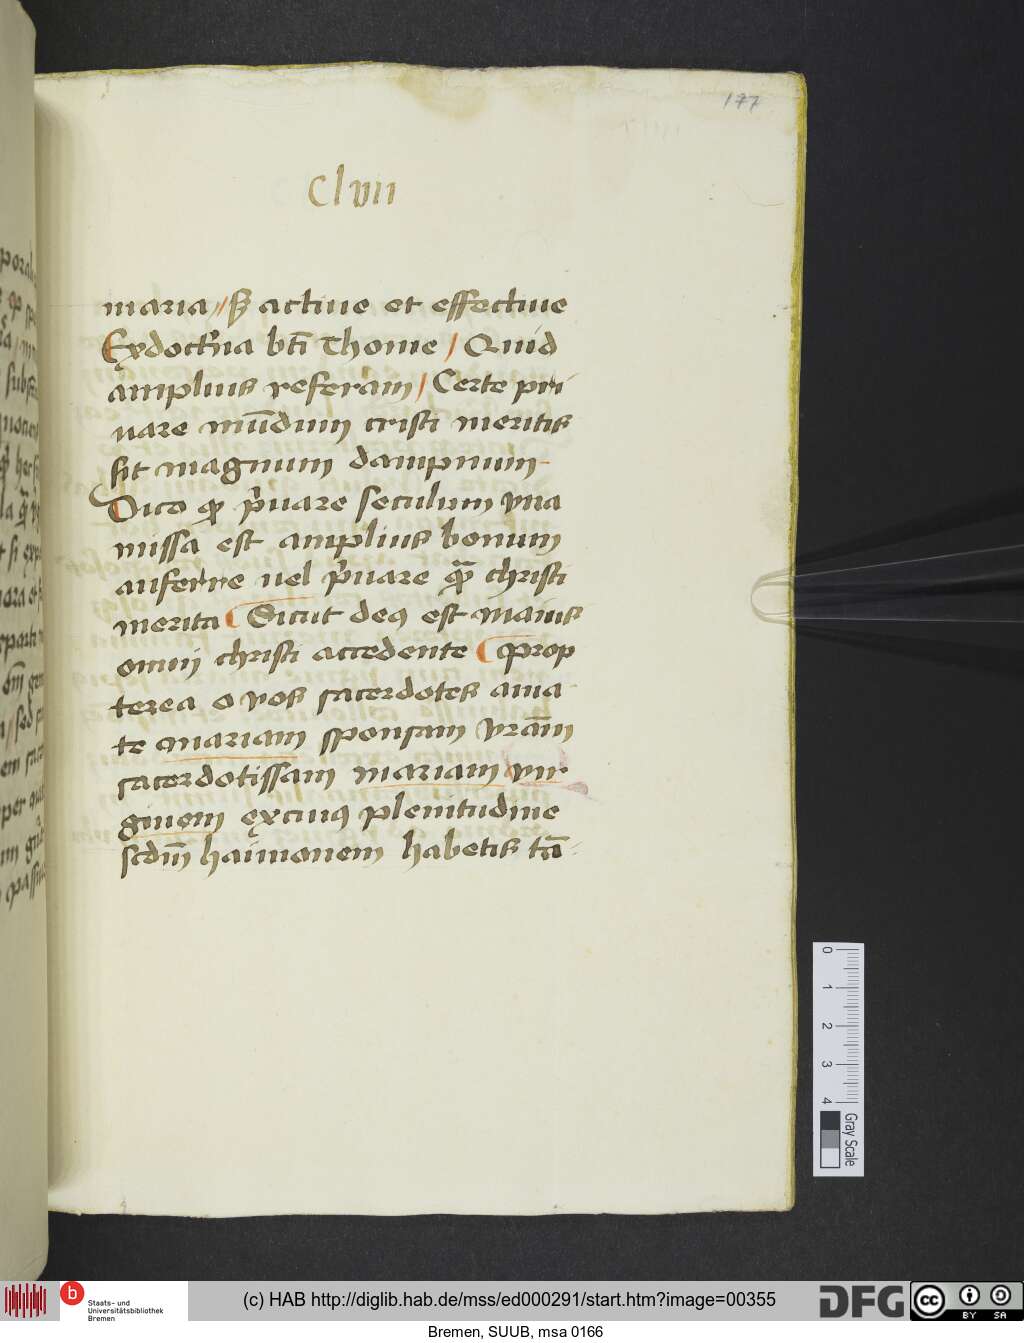 177
Clvii
maria // sʒ actiue et effectiue
Exdoctͥna btī Thome / Quid
amplius referam / Certe pri
uare mūdum cristi meritis
sit magnum dampnum
Dico ꝙ pͥuare seculum vna
missa est amplius bonum
auferre uel pͥuare ꝙ̄ christi
merita Sicut deꝰ est maius
omni christi accedente Prop
terea o vos sacerdotes ama
te mariam sponsam vrām
sacerdotissam mariam vir
ginem ęxcuiꝰ plenitudine
scdm̄ haimonem habetis tā
0 1 2 3 4
Gray Scale
b
Staats- und
Universitätsbibliothek
Bremen
(c) HAB http://diglib.hab.de/mss/ed000291/start.htm?image=00355
DFG
cc
BY SA
Bremen, SUUB, msa 0166